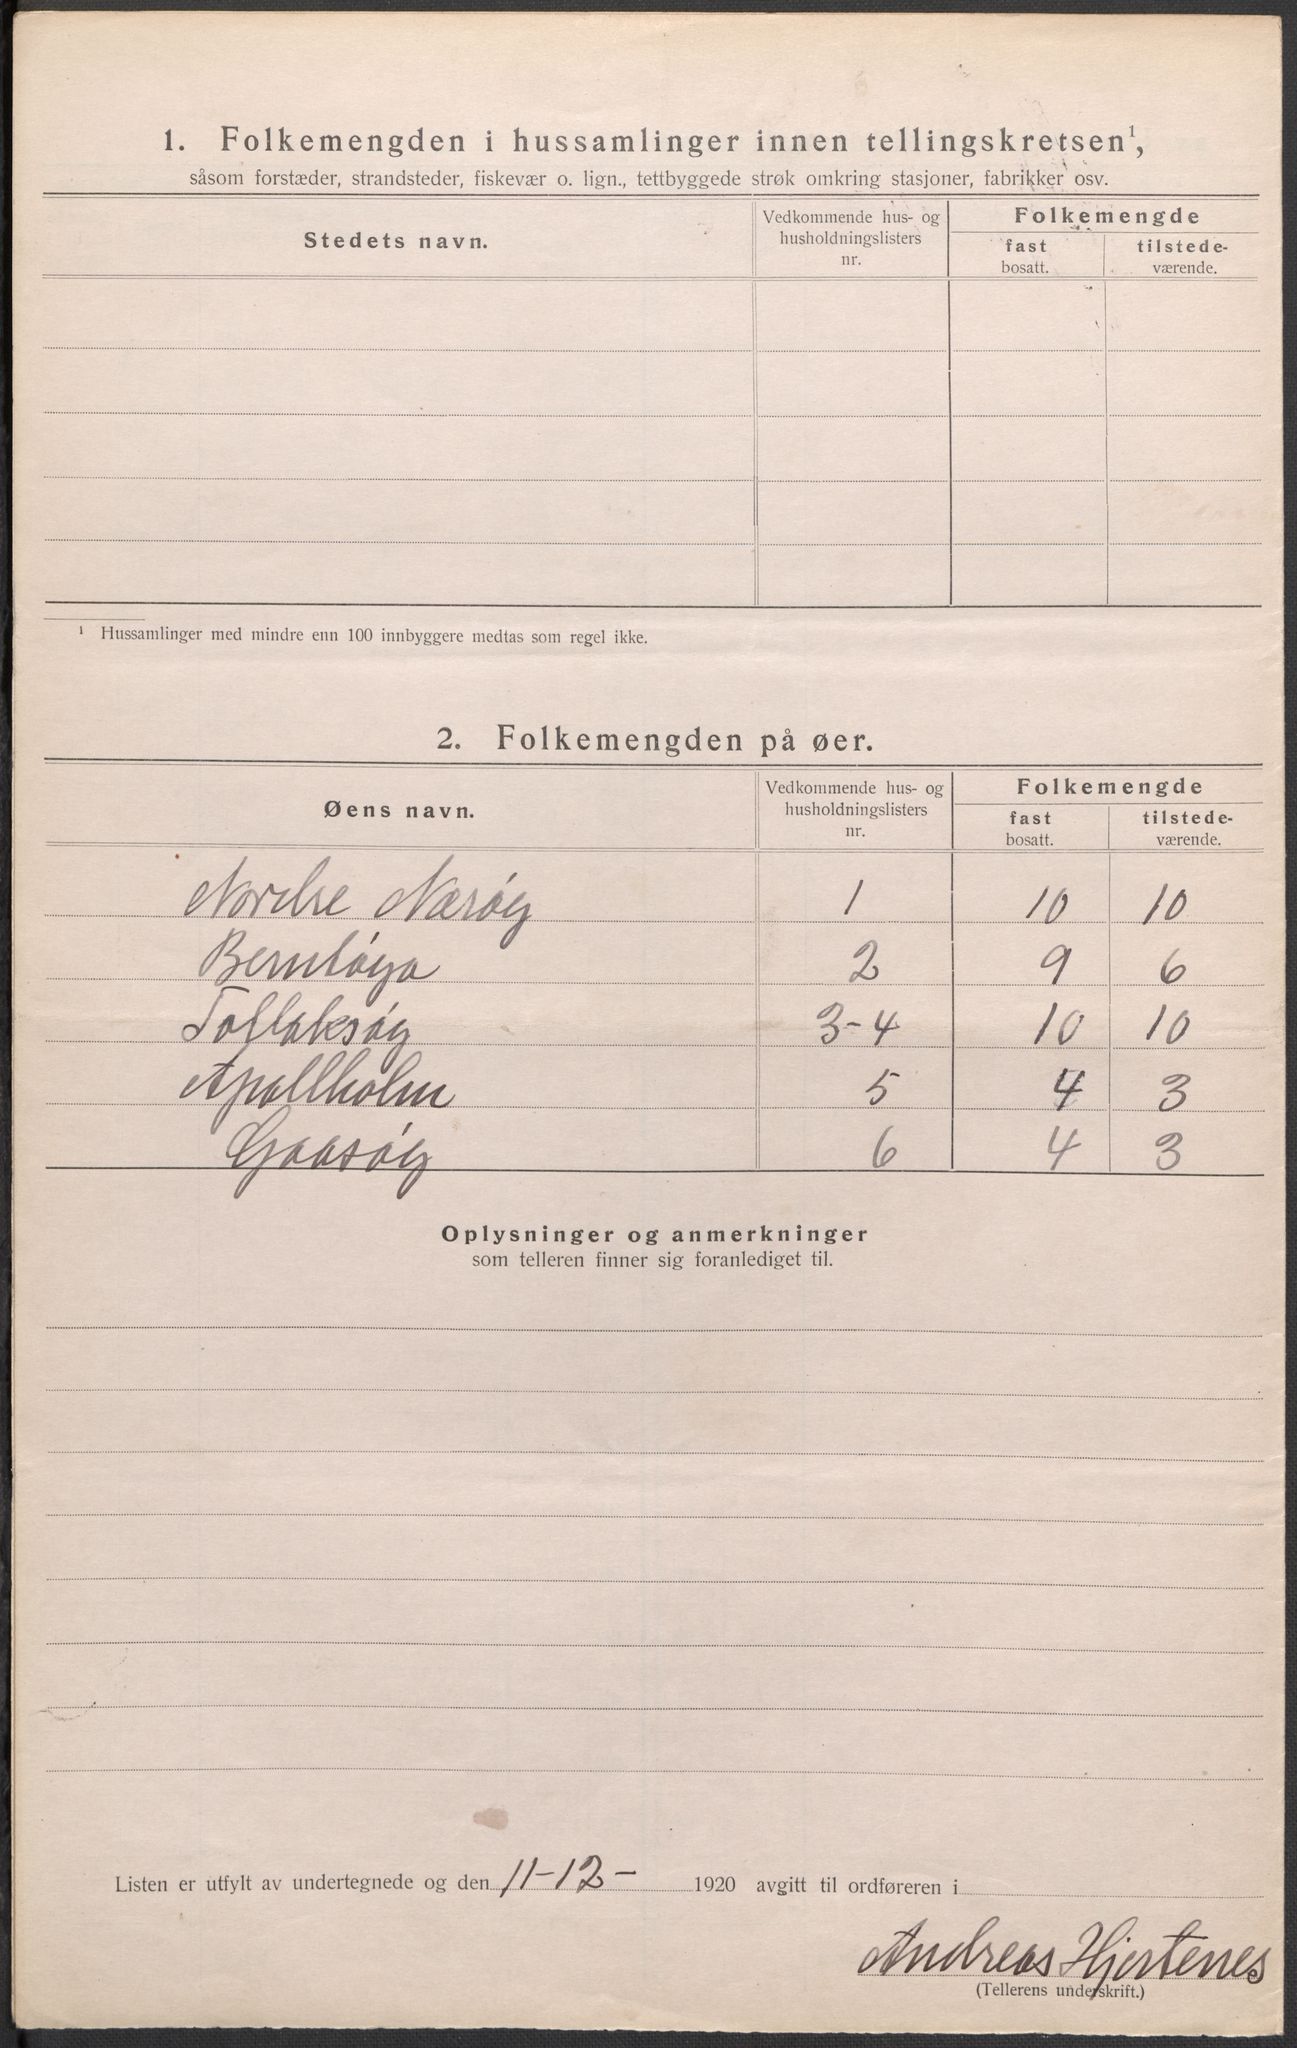 1. Folkemengden i hussamlinger innen tellingskretsen¹,
såsom forstæder, strandsteder, fiskevær o. lign., tettbyggede strøk omkring stasjoner, fabrikker osv.
Stedets navn. Vedkommende hus- og husholdningslisters nr. Folkemengde
fast bosatt. tilstede-værende.
¹ Hussamlinger med mindre enn 100 innbyggere medtas som regel ikke.
2. Folkemengden på øer.
Øens navn. Vedkommende hus- og husholdningslisters nr. Folkemengde
fast bosatt. tilstede-værende.
Nordre Nærøy 1 10 10
Berntøya 2 9 6
Tollaksøy 3-4 10 10
Apallholm 5 4 3
Gaasøy 6 4 3
Oplysninger og anmerkninger
som telleren finner sig foranlediget til.
Listen er utfylt av undertegnede og den 11-12- 1920 avgitt til ordføreren i
Andreas Hjertenes
(Tellerens underskrift.)